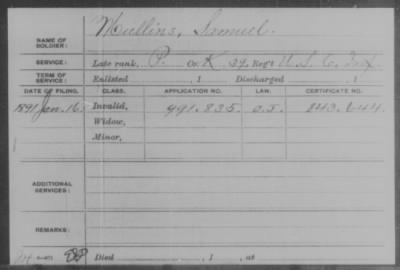 NAME OF SOLDIER: Mullins, Samuel.
SERVICE: Late rank, P. Co. K 39, Reg't U. S. C. Inf.
TERM OF SERVICE: Enlisted , 1 Discharged , 1
DATE OF FILING. CLASS. APPLICATION NO. LAW. CERTIFICATE NO.
1891 Jan. 16. Invalid, 991.835 O.S. 843.644
Widow,
Minor,
ADDITIONAL SERVICES:
REMARKS:
Died , 1 , at